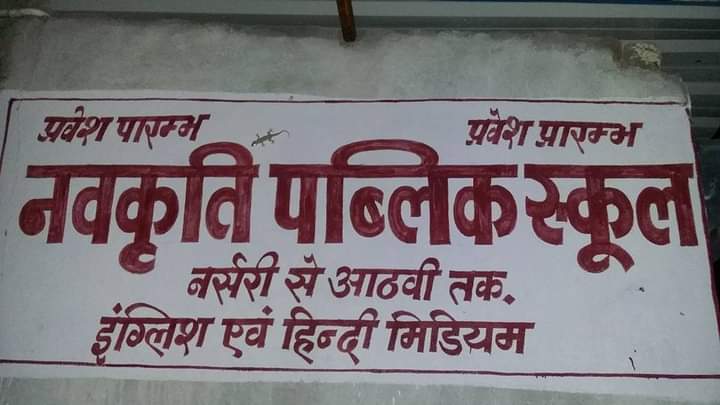 प्रवेश पारम्भ प्रवेश प्रारम्भ
नवकृति पब्लिक स्कूल
नर्सरी से आठवी तक.
इंग्लिश एवं हिन्दी मिडियम